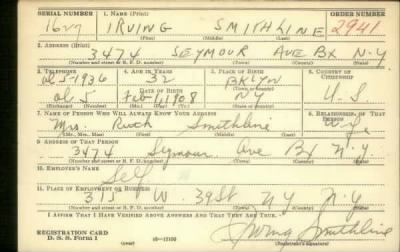 SERIAL NUMBER 1. NAME (Print) ORDER NUMBER
1627 IRVING SMITHLINE 2941
(First) (Middle) (Last)
2. ADDRESS (Print)
3474 SEYMOUR AVE BX N-Y
(Number and street or R. F. D. number) (Town) (County) (State)
3. TELEPHONE 4. AGE IN YEARS 5. PLACE OF BIRTH 6. COUNTRY OF CITIZENSHIP
OL 5-1936 32 BKLYN
DATE OF BIRTH (Town or county)
OL 5 Feb 1908 NY U.S.
(Exchange) (Number) (Mo.) (Day) (Yr.) (State or country)
7. NAME OF PERSON WHO WILL ALWAYS KNOW YOUR ADDRESS 8. RELATIONSHIP OF THAT PERSON
Mrs. Ruth Smithline Wife
(Mr., Mrs., Miss) (First) (Middle) (Last)
9. ADDRESS OF THAT PERSON
3474 Seymour Ave Bx N.Y.
(Number and street or R. F. D. number) (Town) (County) (State)
10. EMPLOYER'S NAME
Self
11. PLACE OF EMPLOYMENT OR BUSINESS
315 W. 39 St NY NY
(Number and street or R. F. D. number) (Town) (County) (State)
I AFFIRM THAT I HAVE VERIFIED ABOVE ANSWERS AND THAT THEY ARE TRUE.
REGISTRATION CARD
D. S. S. Form 1 16-17105 Irving Smithline
(Registrant's signature)